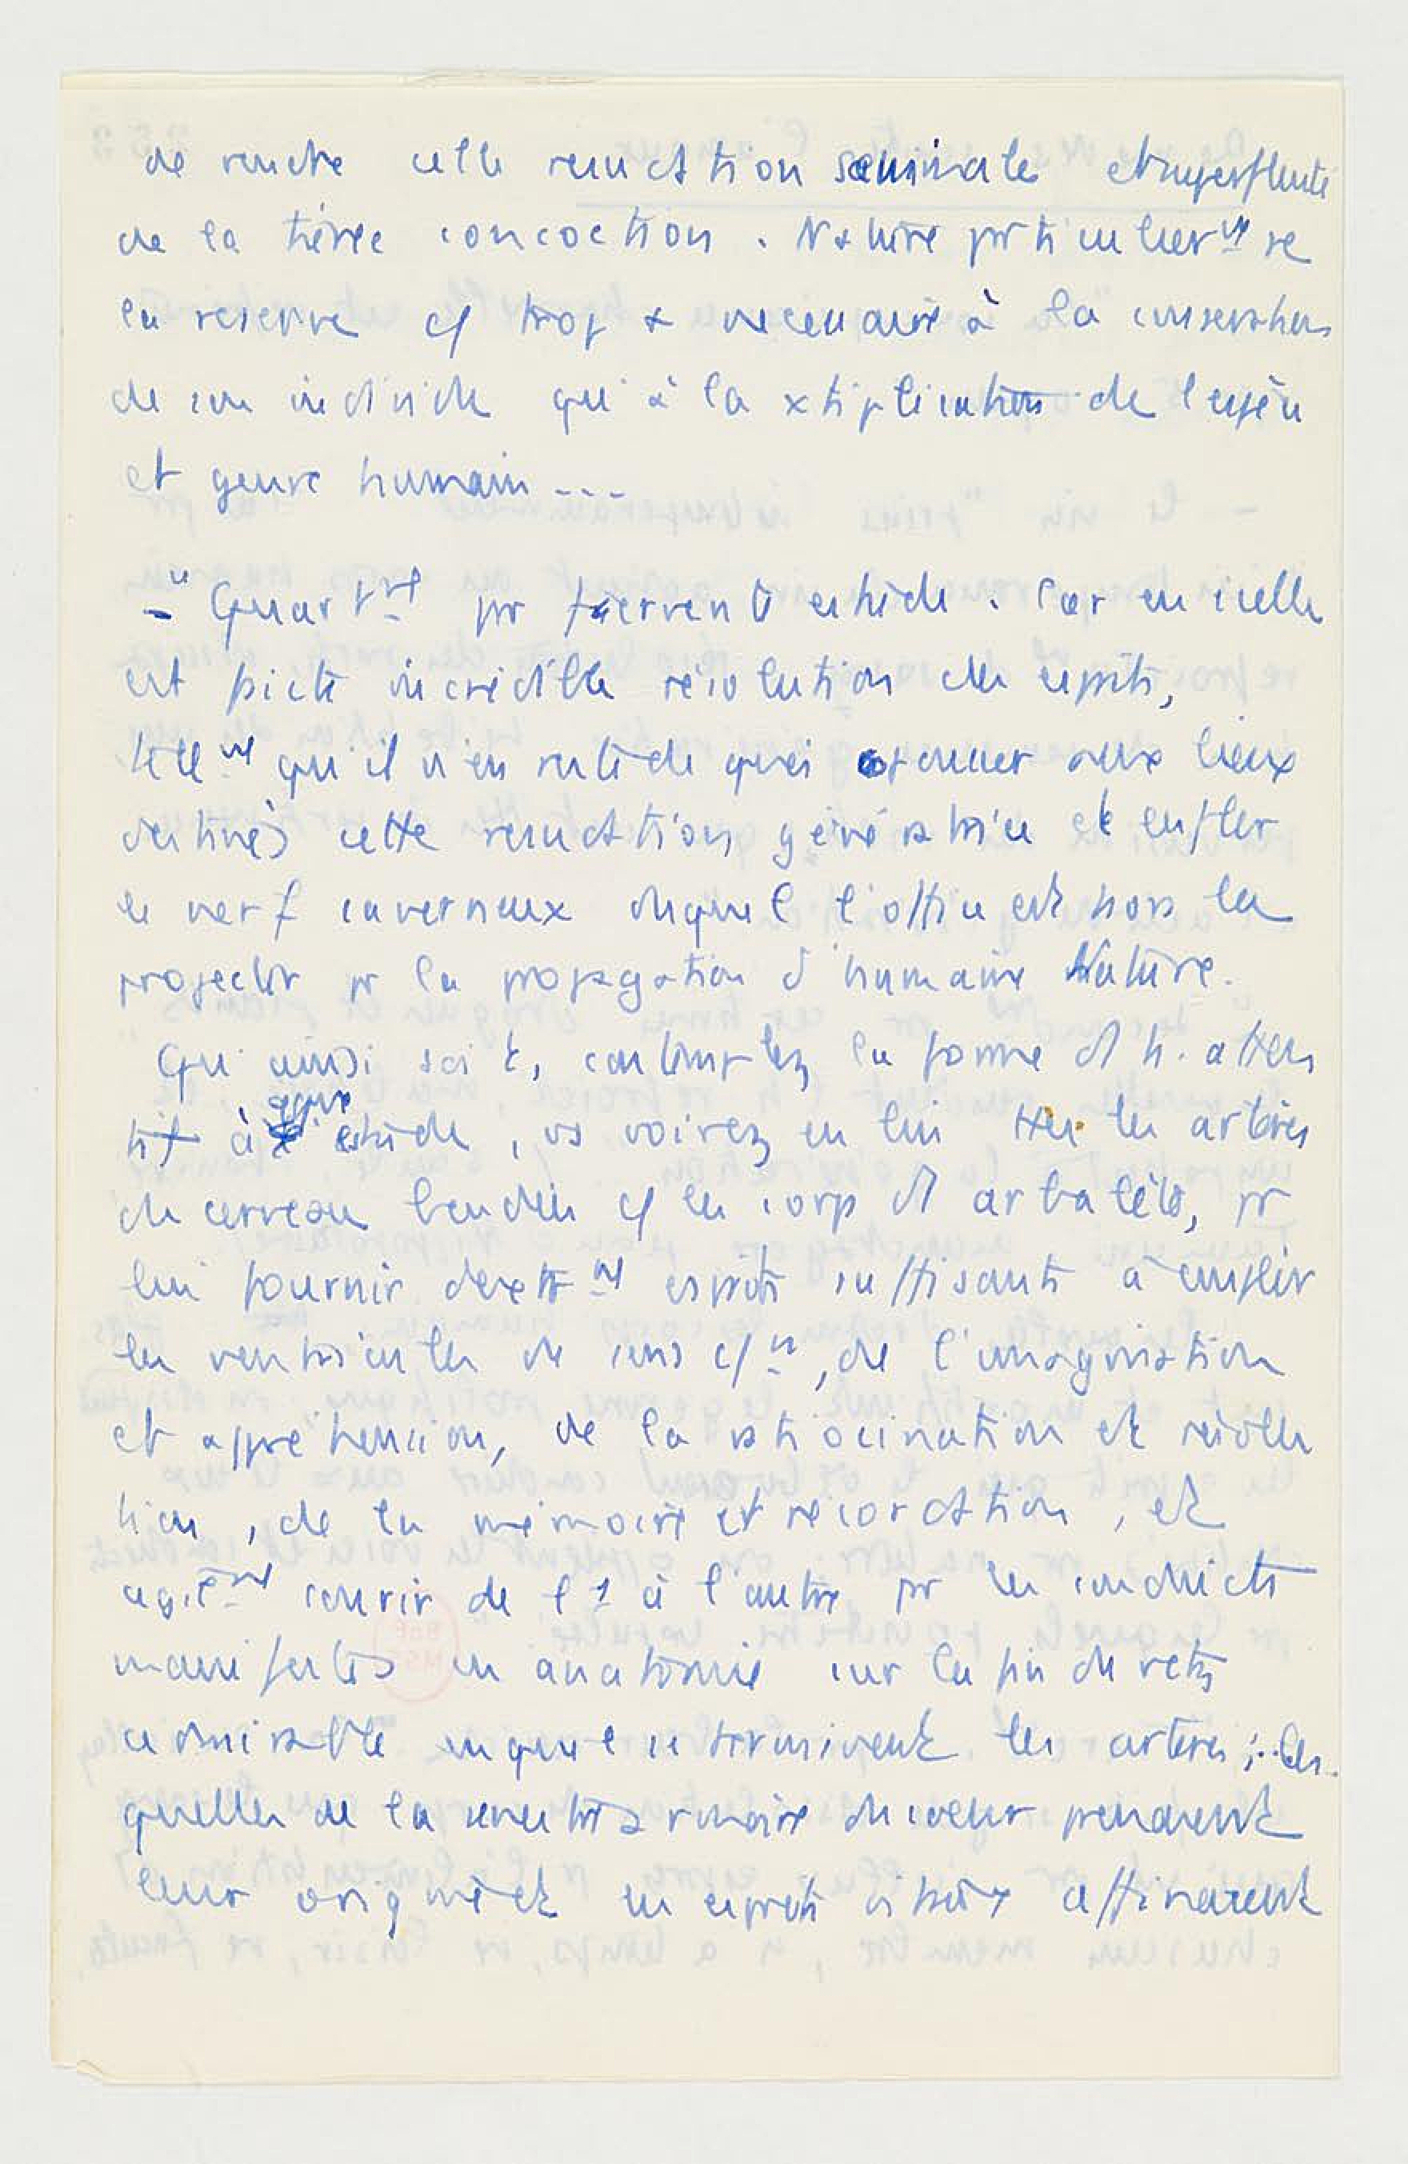 de rendre cette exudation séminale et superfluité
de la tierce concoction. Nature particulier^mt se
la reserve cf trop + necessaire à la conservation
de son individu qu'à la xtiplication de l'espèce
et genre humain...
" Quart^mt pr fervente estude. Car en icelle
est faicte incredible résolution des esprits,
telle^mt qu'il n'en reste de quoi pousser aux lieux
destinés cette resudation génératrice et enfler
le nerf caverneux duquel l'office est hors la
projecter pr la propagation d'humaine Nature.
Qu'ainsi soit, contemplez la forme d'1 h. atten
tif à qque estude, vs voirez en lui ttes les artères
du cerveau bendées cf la corp d'1 arbalète, pr
lui fournir dextr^mt esprits suffisants à emplir
les ventricules de sens c/^n, de l'imagination
et appréhension, de la ratiocination et résolu
tion, de la mémoire et recordation, et
agil^mt courir de l'1 à l'autre pr les conduicts
manifestes en anatomie sur la fin du retz
admirable auquel se terminent les artères ; les
quelles de la senestre armoire du coeur prendrent
leur origine et les esprits vitaux affinarent